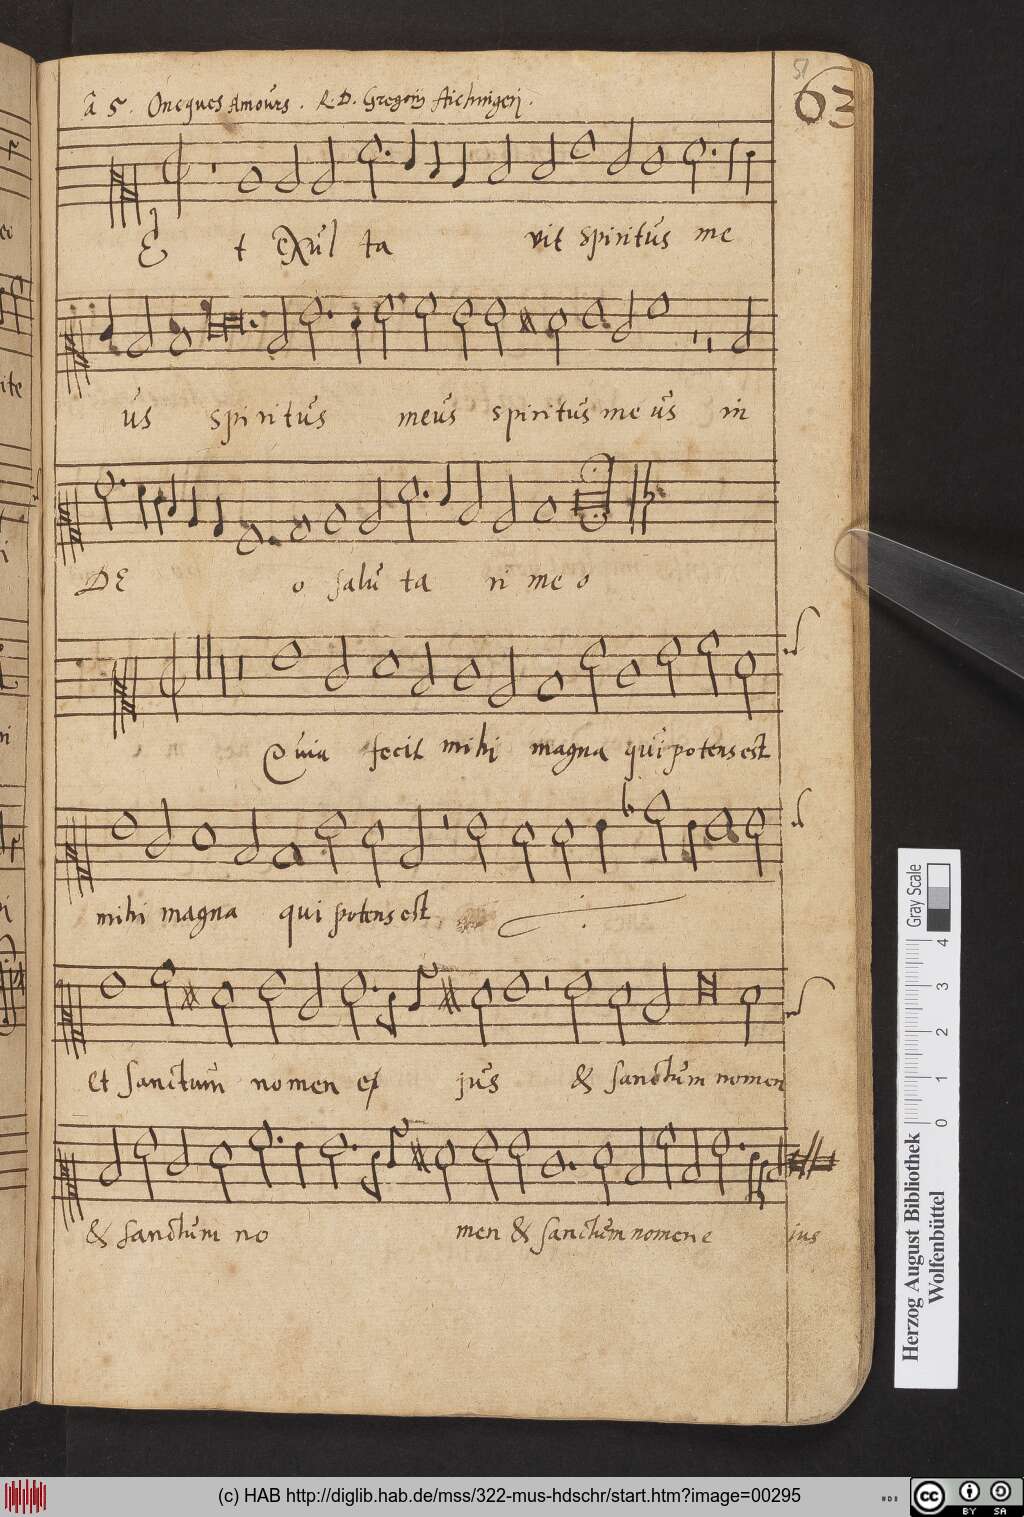 51
63
â 5. Oncques Amours. R. D. Gregorij Aichingeri.
Et exul ta vit spiritus me
us spiritus meus spiritus me us in
DE o salu ta ri me o
Quia fecit mihi magna qui potens est
mihi magna qui potens est
et sanctum nomen ej jus & sanctum nomen
& sanctum no men & sanctum nomen e ius
ite
Gray Scale
0 1 2 3 4
Herzog August Bibliothek
Wolfenbüttel
(c) HAB http://diglib.hab.de/mss/322-mus-hdschr/start.htm?image=00295
cc BY SA